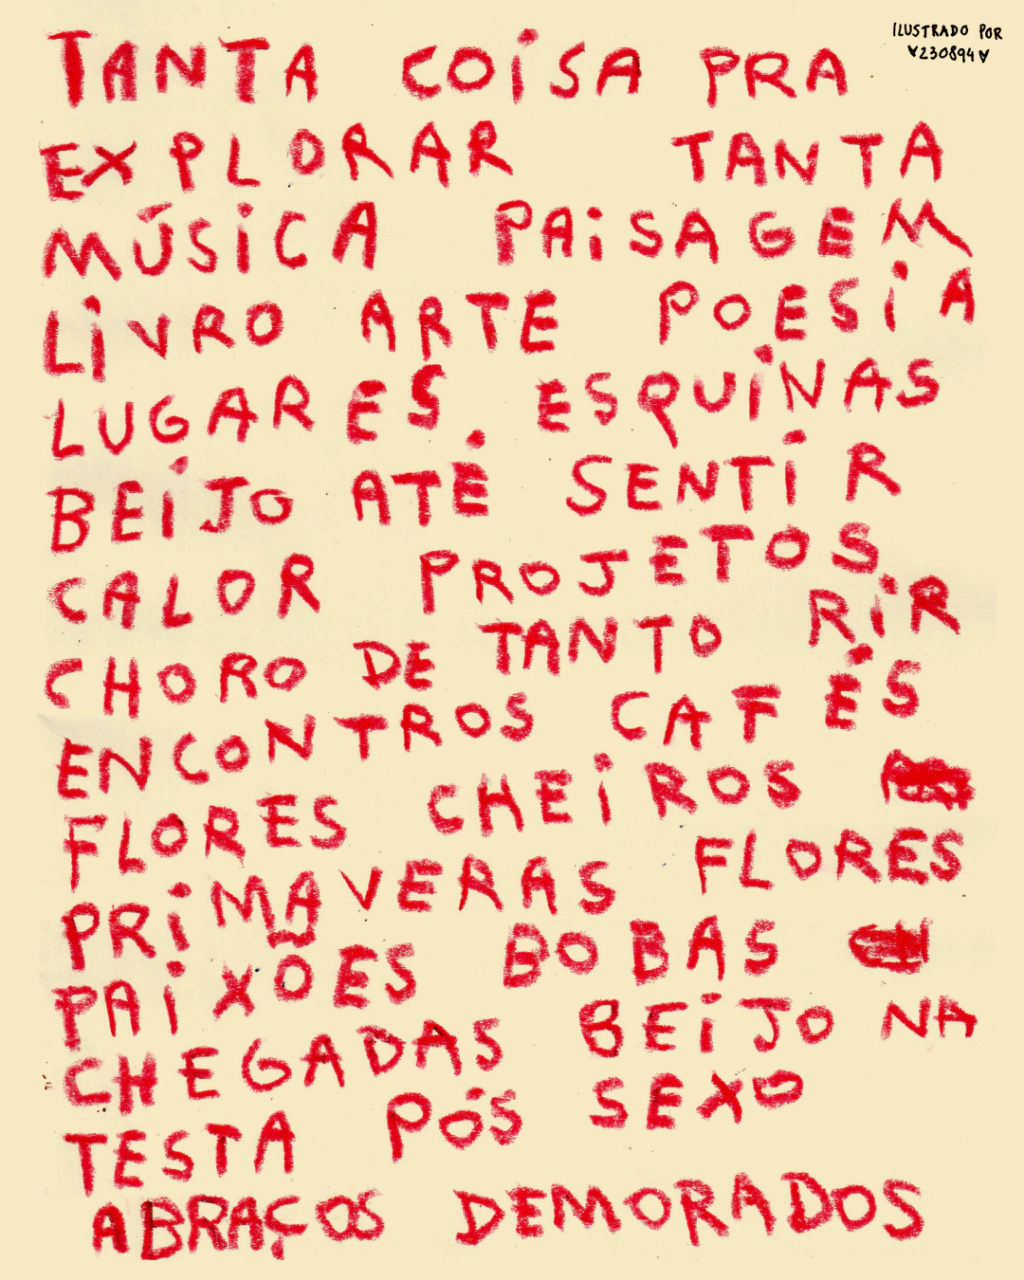 ILUSTRADO POR
♥230894♥
TANTA COISA PRA
EXPLORAR TANTA
MÚSICA PAISAGEM
LIVRO ARTE POESIA
LUGARES ESQUINAS
BEIJO ATÉ SENTIR
CALOR PROJETOS
CHORO DE TANTO RIR
ENCONTROS CAFÉS
FLORES CHEIROS
PRIMAVERAS FLORES
PAIXÕES BOBAS
CHEGADAS BEIJO NA
TESTA PÓS SEXO
ABRAÇOS DEMORADOS